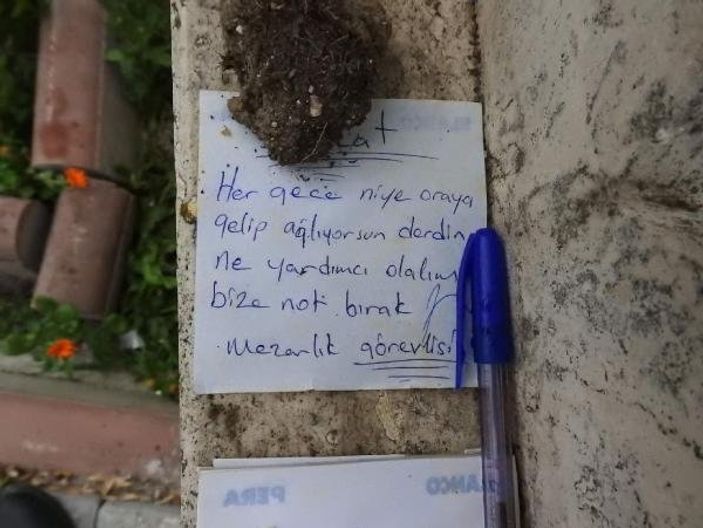 Her gece niye oraya
gelip ağlıyorsun derdin
ne yardımcı olalım
bize not bırak
mezarlık görevlisi
PERA